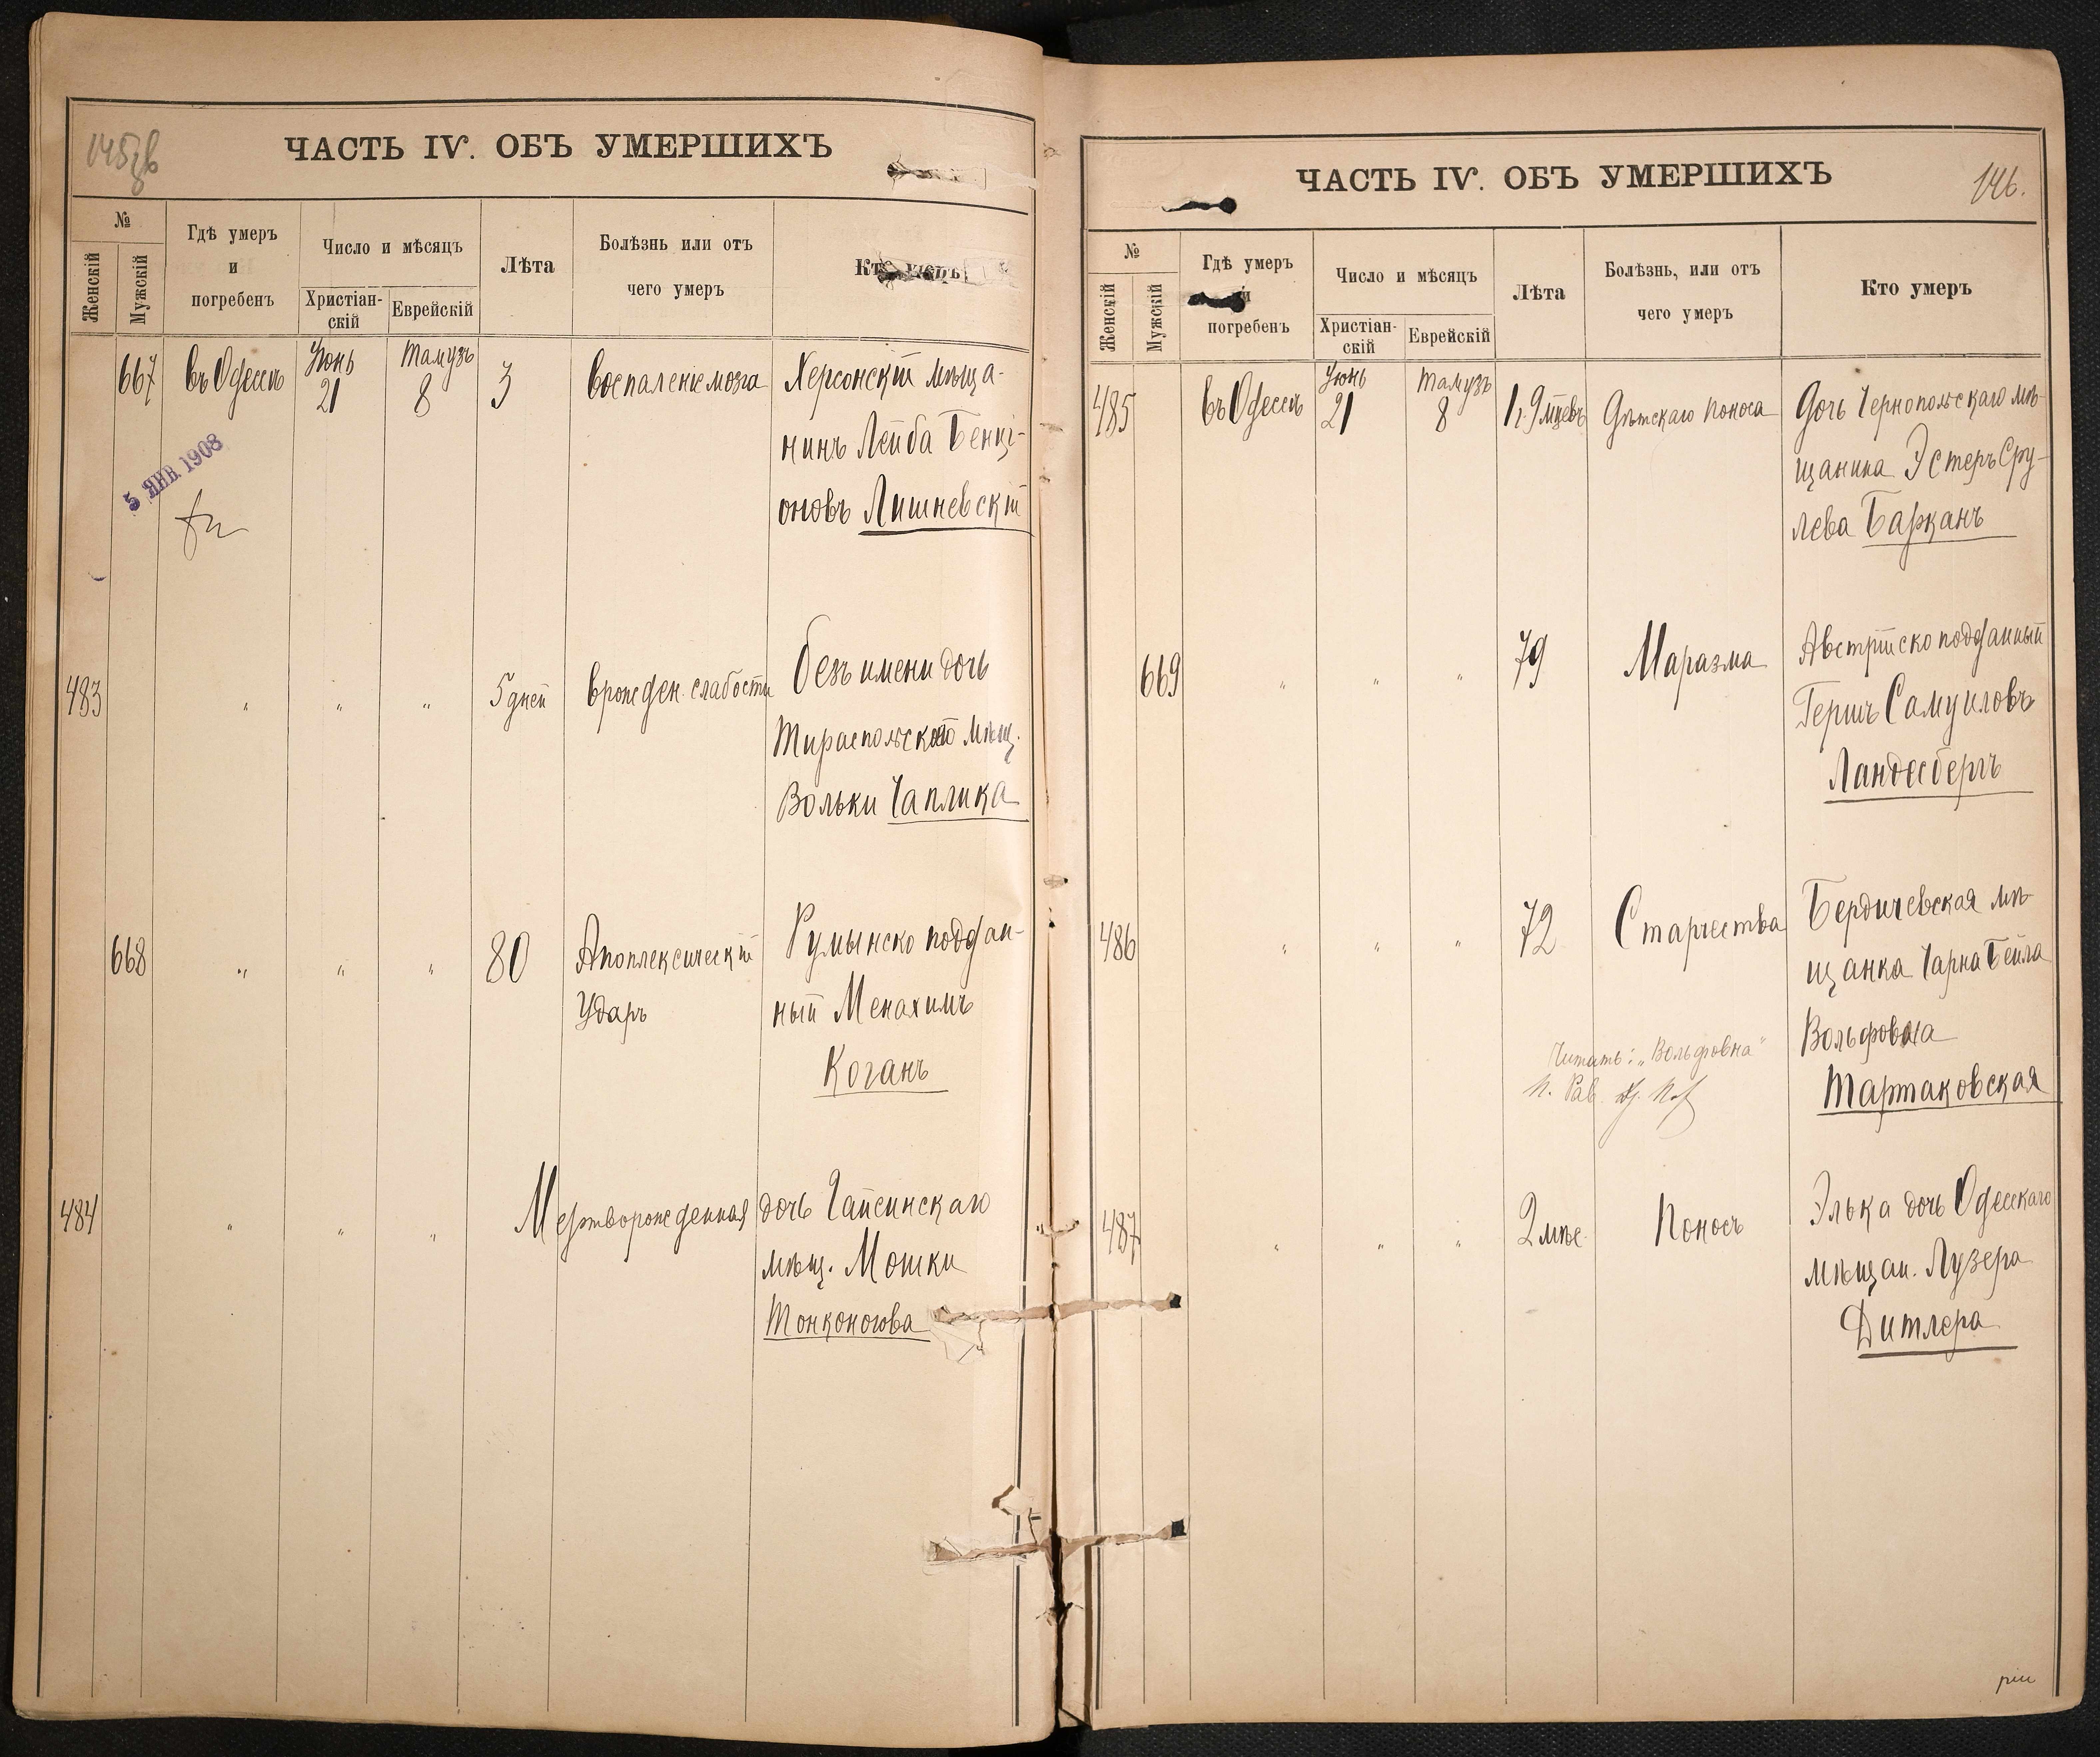 145 об
ЧАСТЬ IV. ОБЪ УМЕРШИХЪ
№
Женскій
Мужскій
Гдѣ умеръ
и
погребенъ
Число и мѣсяцъ
Христіан-
скій
Еврейскій
Лѣта
Болѣзнь или отъ
чего умеръ
Кто умеръ
667 въ Одессѣ Іюнь 21 Тамузъ 8 3 воспаленіе мозга Херсонскій мѣща-
нинъ Лейба Бенці-
оновъ Лишневскій
5 ЯНВ 1908
483 " " " 5 дней врожден. слабости безъ имени дочь
Тираспольскаго мѣщ.
Вольки Чаплика
668 " " " 80 Апоплексическій Румынско поддан-
Ударъ ный Менахимъ
Коганъ
484 " " " Мертворожденная дочь Гайсинскаго
мѣщ. Мошки
Тонконогова
ЧАСТЬ IV. ОБЪ УМЕРШИХЪ
146.
№
Женскій
Мужскій
Гдѣ умеръ
и
погребенъ
Число и мѣсяцъ
Христіан-
скій
Еврейскій
Лѣта
Болѣзнь, или отъ
чего умеръ
Кто умеръ
485 въ Одессѣ Іюнь 21 Тамузъ 8 1 г. 9 мцевъ Дѣтскаго поноса Дочь Чернопольскаго мѣ-
щанина Эстеръ Сру-
лева Барканъ
669 " " " 79 Маразма Австрійско подданный
Гершъ Самуиловъ
Ландесбергъ
486 " " " 72 Старчества Бердичевская мѣ-
щанка Чарна Бейла
Вольфовна
Читать: „Вольфовна"
Тартаковская
И. Рав.
487 " " " 2 мѣс. Поносъ Элька дочь Одесскаго
мѣщан. Лузера
Дитлера